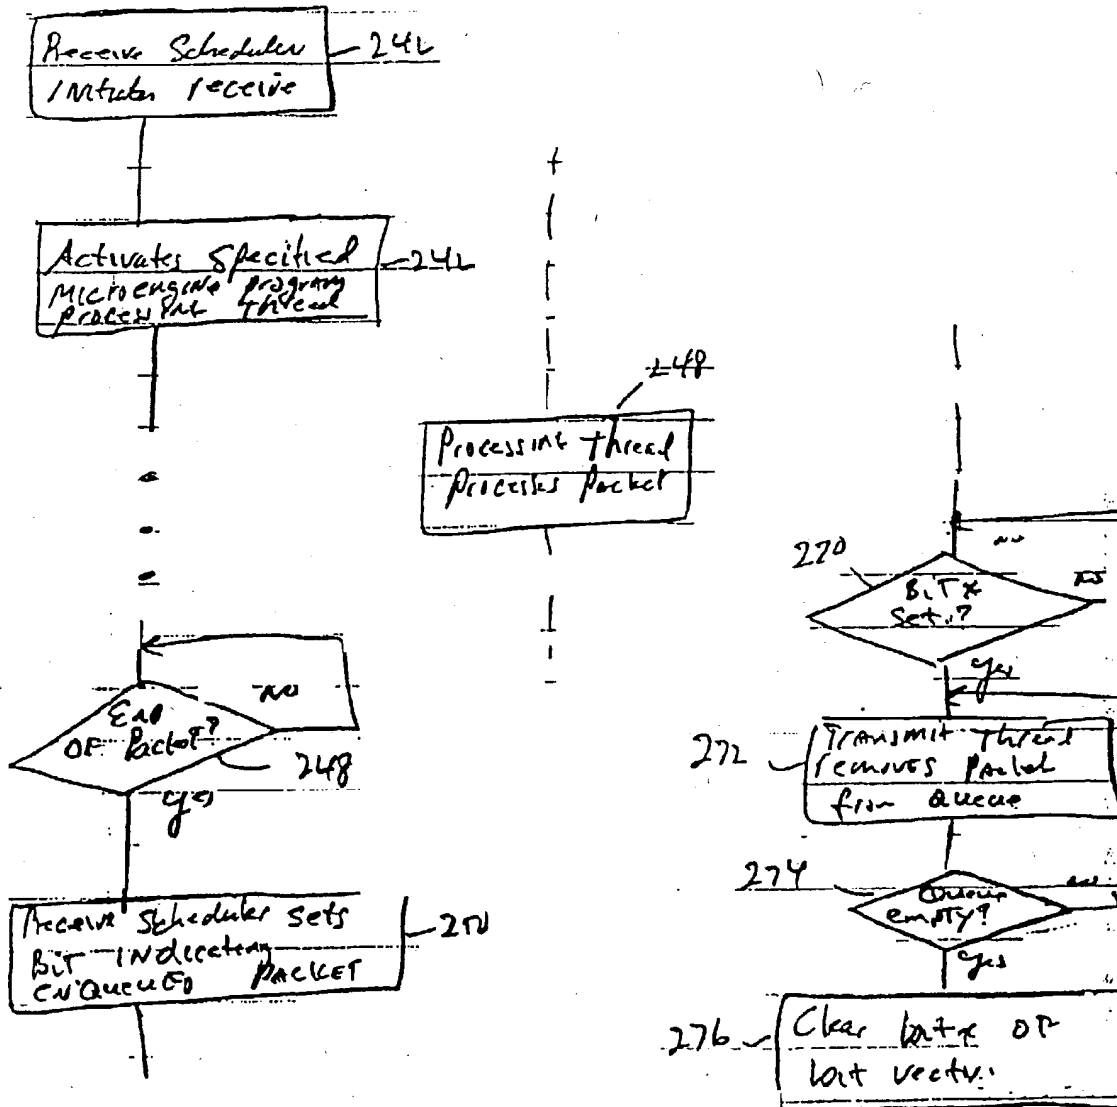 Receive Scheduler
Initiates receive
242
Activates Specified
Microengine program
processing thread
242
248
Processing thread
processes packet
End
OF Packet?
NO
248
yes
Receive Scheduler sets
Bit indicating
ENQUEUED PACKET
250
270
BITx
Set?
NO
yes
272
Transmit thread
removes packet
from queue
274
Queue
empty?
NO
yes
276
Clear bit x of
bit vector